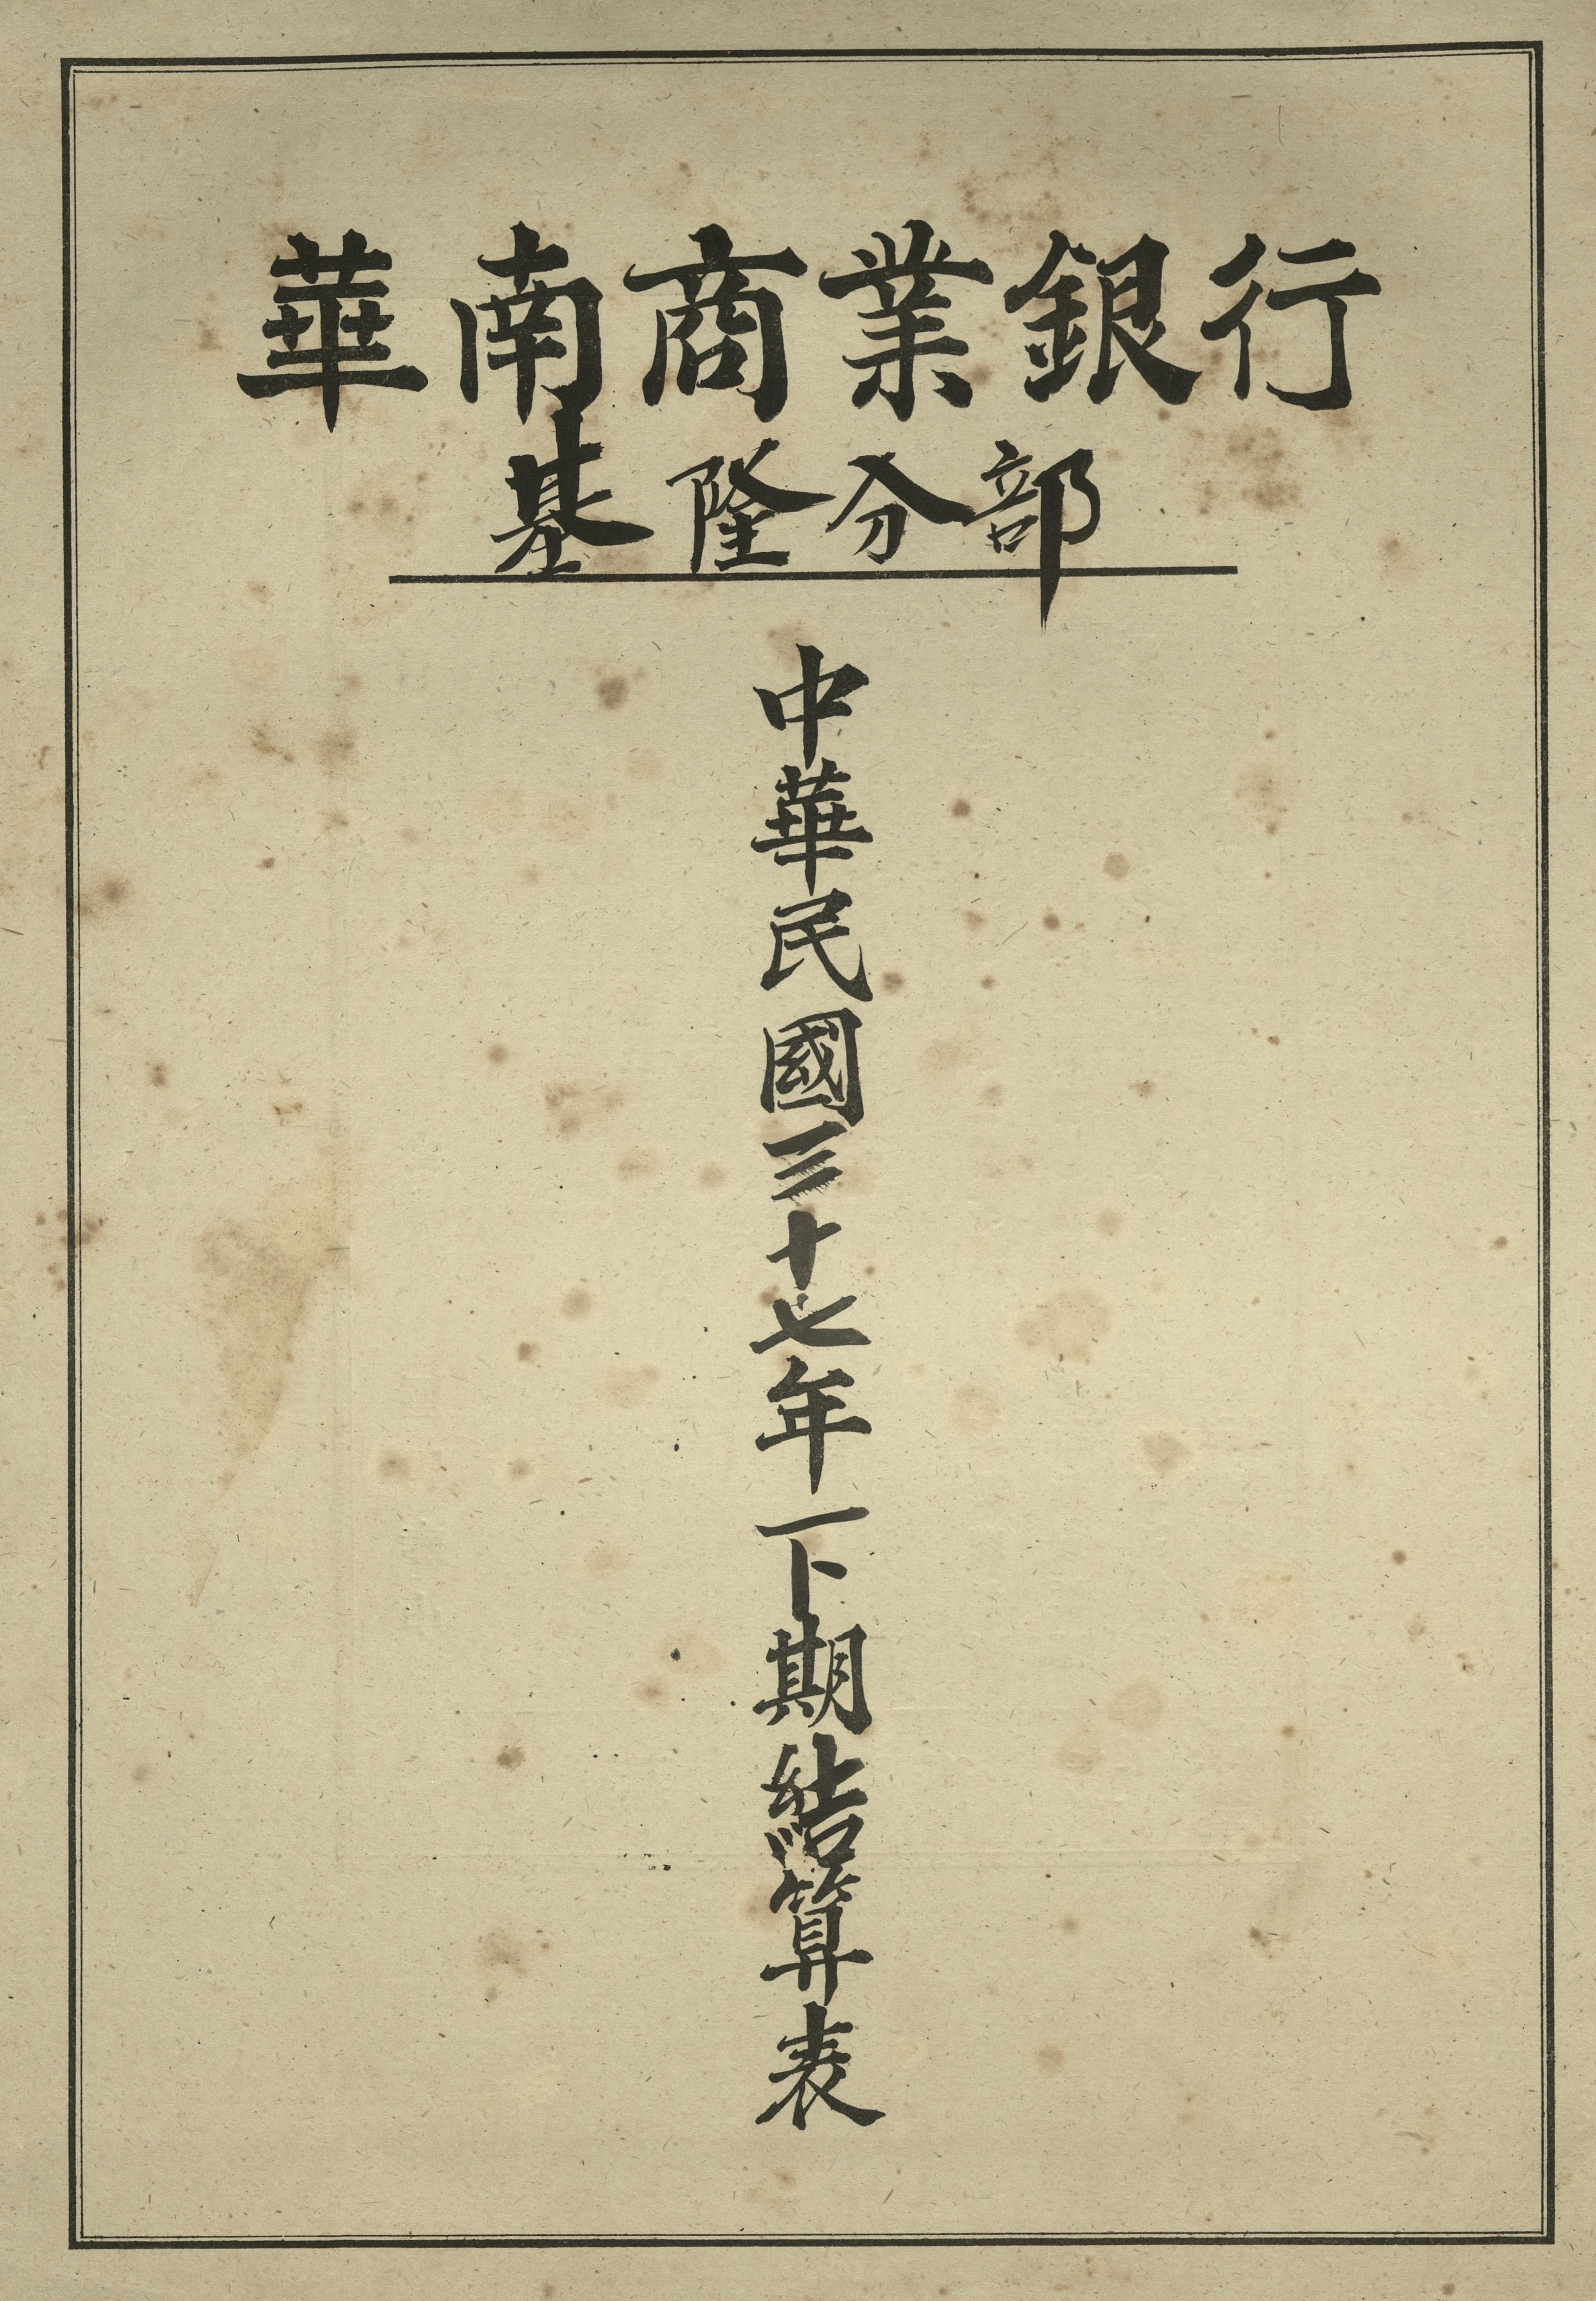 華南商業銀行
基隆分部
中華民國三十七年下期結算表